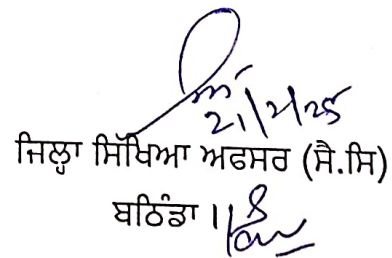 21/2/25
ਜਿਲ੍ਹਾ ਸਿੱਖਿਆ ਅਫਸਰ (ਸੈ.ਸਿ)
ਬਠਿੰਡਾ ।